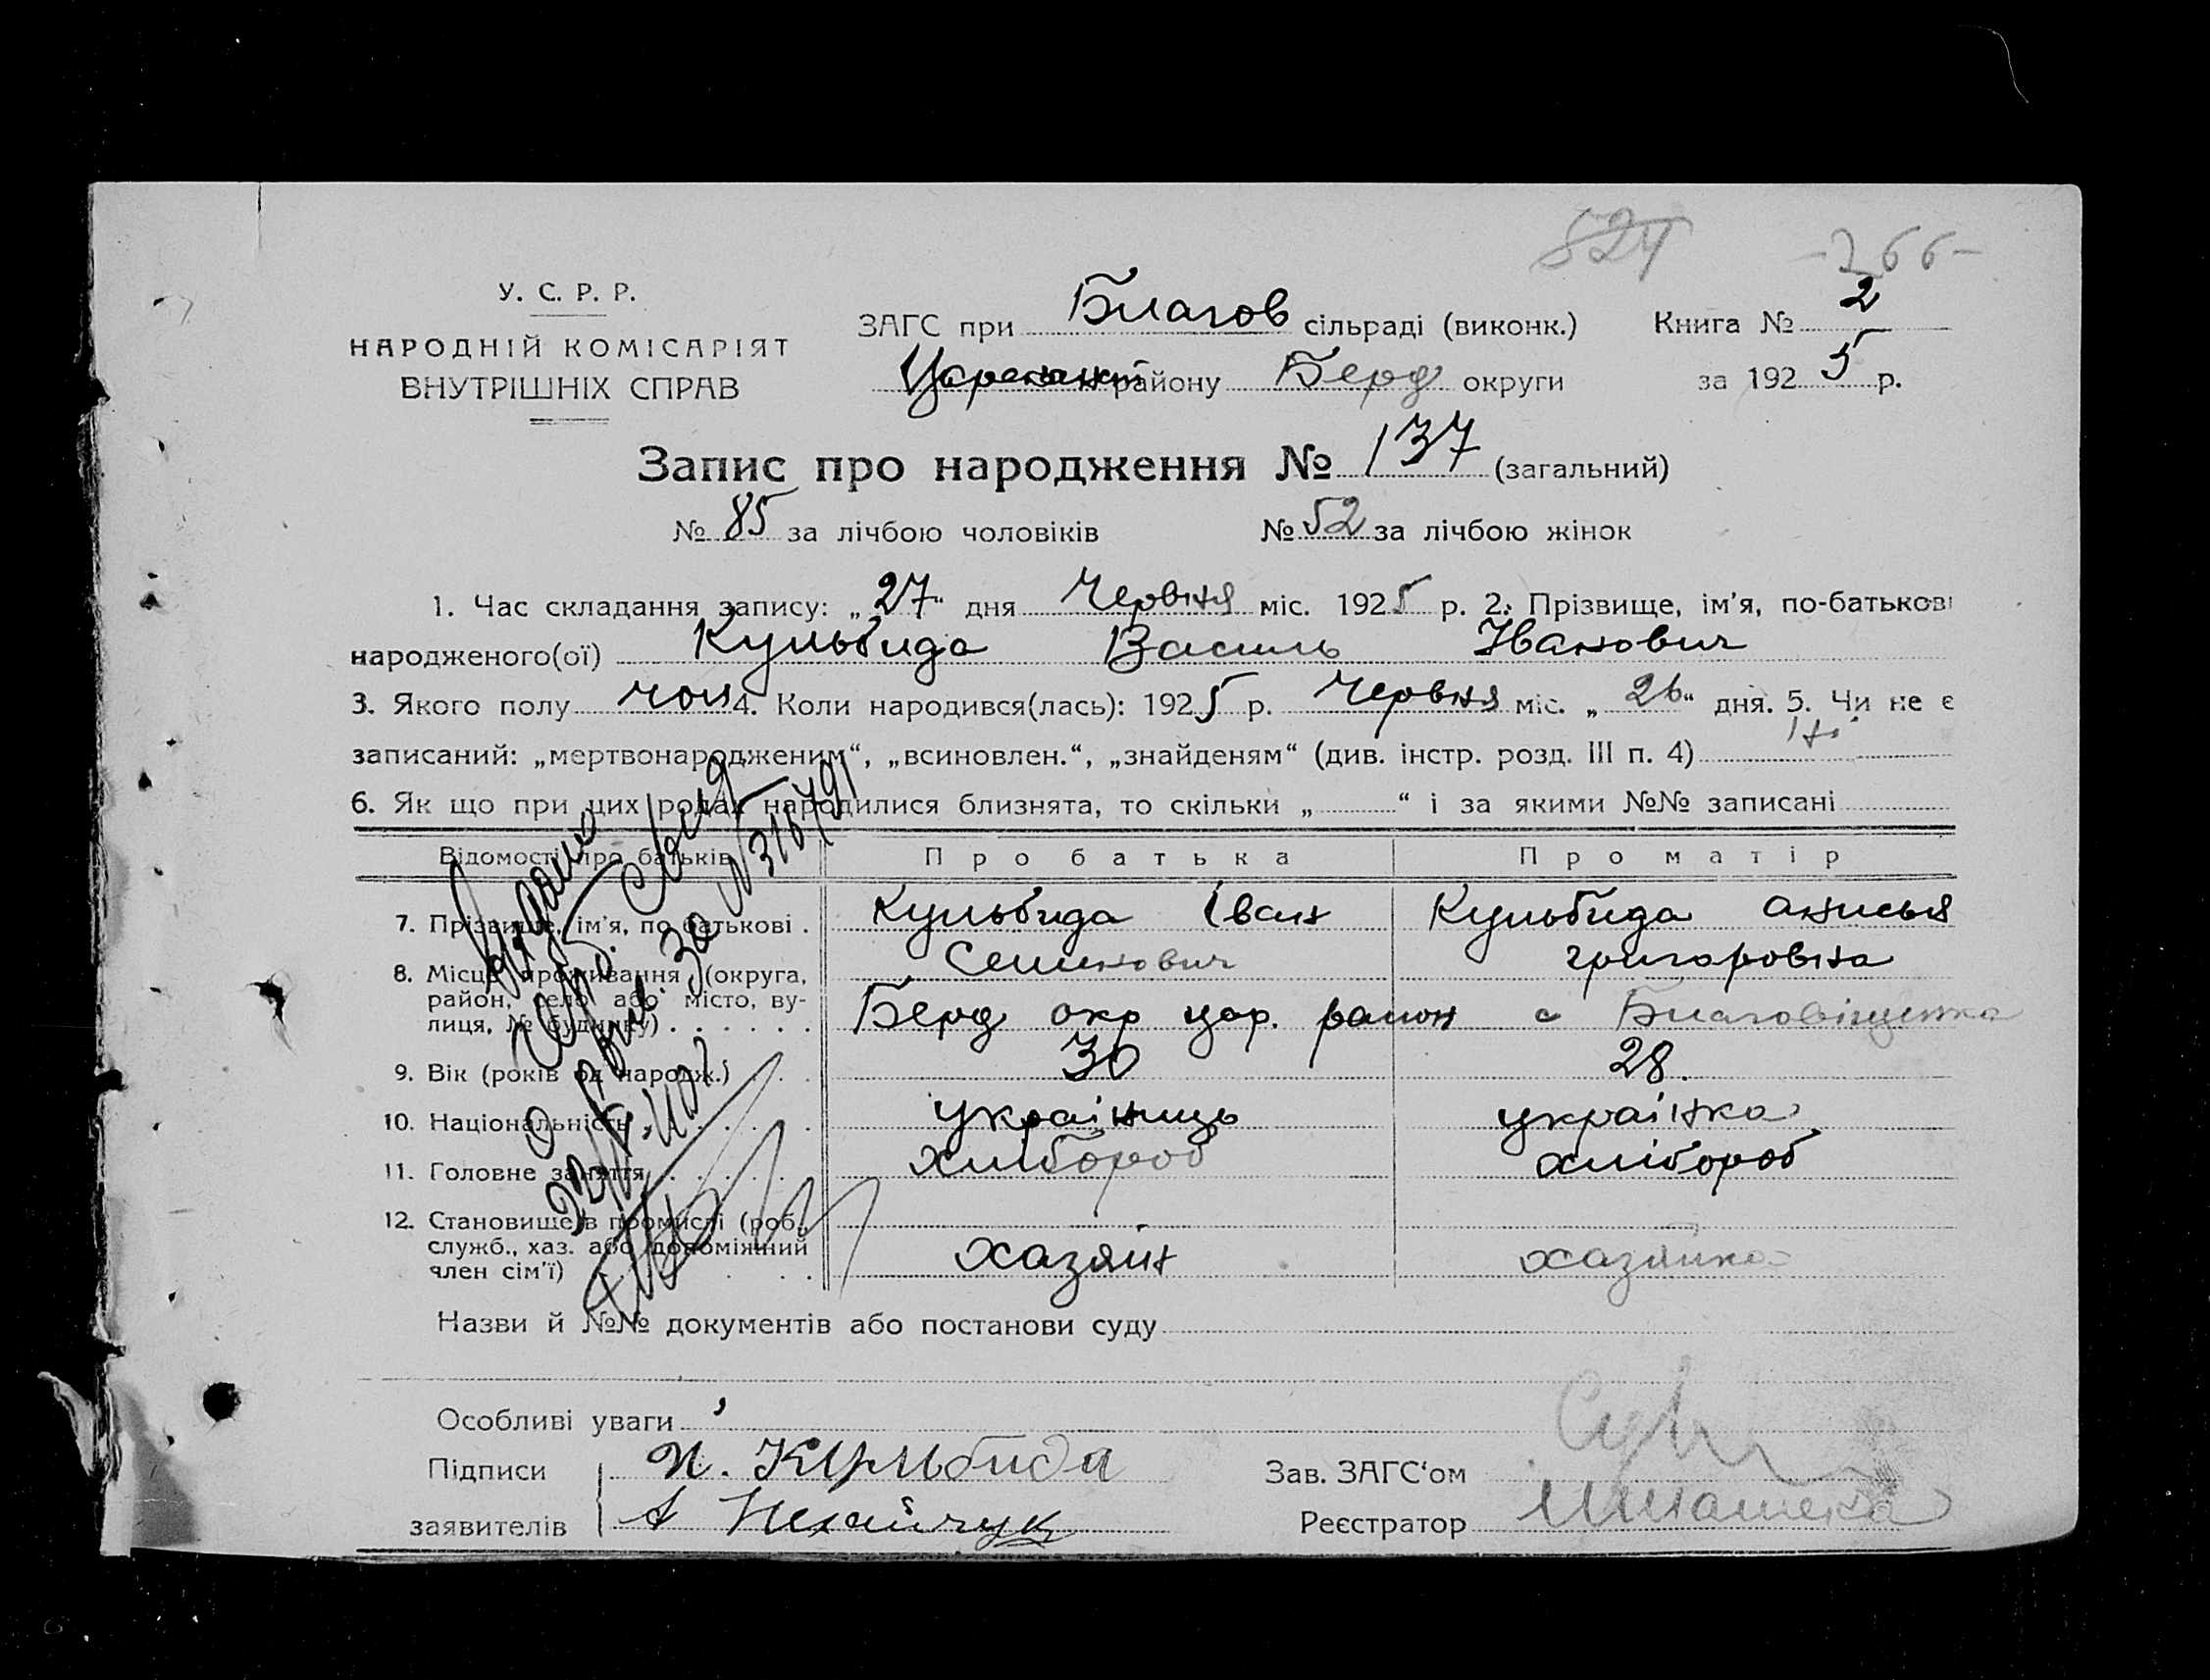 524 -266-
У. С. Р. Р.
НАРОДНІЙ КОМІСАРІЯТ
ВНУТРІШНІХ СПРАВ
ЗАГС при Благов сільраді (виконк.) Книга № 2
району Берд округи за 1925 р.
Запис про народження № 137 (загальний)
№ 85 за лічбою чоловіків № 52 за лічбою жінок
1. Час складання запису: „27“ дня Червня міс. 1925 р. 2. Прізвище, ім’я, по-батькові
народженого(ої) Кульбида Василь Іванович
3. Якого полу чол 4. Коли народився(лась): 1925 р. Червня міс. „26“ дня. 5. Чи не є
записаний: „мертвонародженим“, „всиновлен.“, „знайденям“ (див. інстр. розд. III п. 4) Ні
6. Як що при цих родах народилися близнята, то скільки „ “ і за якими №№ записані
Відомості про батьків Про батька Про матір
7. Прізвище, ім’я, по батькові . Кульбида Іван Кульбида Анисья
Семенович Григоровна
8. Місце проживання (округа,
район, село або місто, ву-
лиця, № будинку) . . . . . . Берд окр цар. район с Благовіщенка
9. Вік (років од народж.) . . . 30 28.
10. Національність . . . . . . українець українка
11. Головне заняття . . . . . . хлібороб хлібороб
12. Становище в промислі (роб.,
служб., хаз. або допоміжний
член сім’ї) . . . хазяїн хазяйка
Назви й №№ документів або постанови суду
Особливі уваги
Підписи И. Кульбида Зав. ЗАГС‘ом
заявителів А Реєстратор